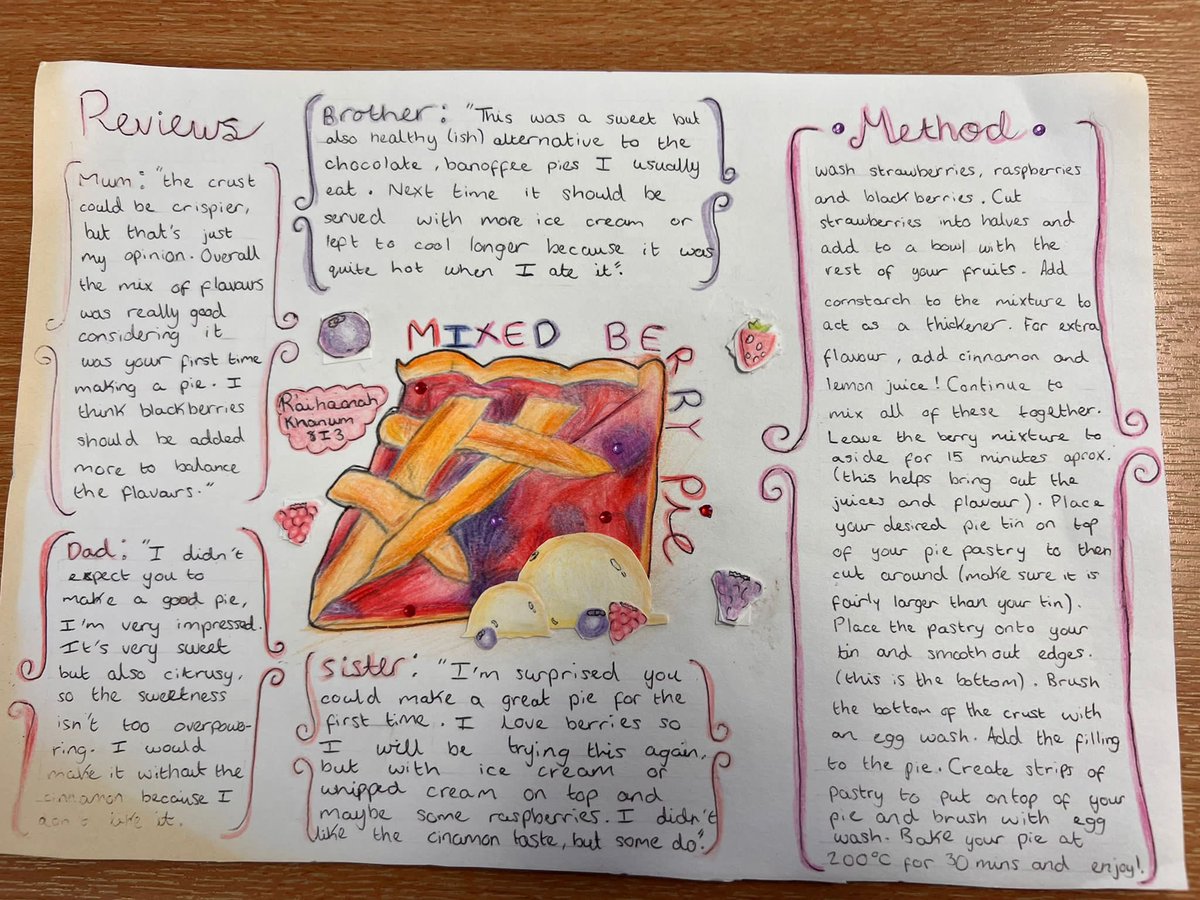 Reviews
Mum: "the crust
could be crispier,
but that's just
my opinion. Overall
the mix of flavours
was really good
considering it
was your first time
making a pie. I
think blackberries
should be added
more to balance
the flavours."
Dad: "I didn't
expect you to
make a good pie,
I'm very impressed.
It's very sweet
but also citrusy,
so the sweetness
isn't too overpowe-
ring. I would
make it without the
cinnamon because I
don't like it.
Brother: "This was a sweet but
also healthy (ish) alternative to the
chocolate, banoffee pies I usually
eat. Next time it should be
served with more ice cream or
left to cool longer because it was
quite hot when I ate it".
MIXED BERRY PIE
Raihaanah
Khanum
8I3
Sister: "I'm surprised you
could make a great pie for the
first time. I love berries so
I will be trying this again,
but with ice cream or
whipped cream on top and
maybe some raspberries. I didn't
like the cinamon taste, but some do."
Method
wash strawberries, raspberries
and blackberries. Cut
strawberries into halves and
add to a bowl with the
rest of your fruits. Add
cornstarch to the mixture to
act as a thickener. For extra
flavour, add cinnamon and
lemon juice! Continue to
mix all of these together.
Leave the berry mixture to
aside for 15 minutes aprox.
(this helps bring out the
juices and flavour). Place
your desired pie tin on top
of your pie pastry to then
cut around (make sure it is
fairly larger than your tin).
Place the pastry onto your
tin and smooth out edges.
(this is the bottom). Brush
the bottom of the crust with
an egg wash. Add the filling
to the pie. Create strips of
pastry to put ontop of your
pie and brush with egg
wash. Bake your pie at
200°C for 30 mins and enjoy!.